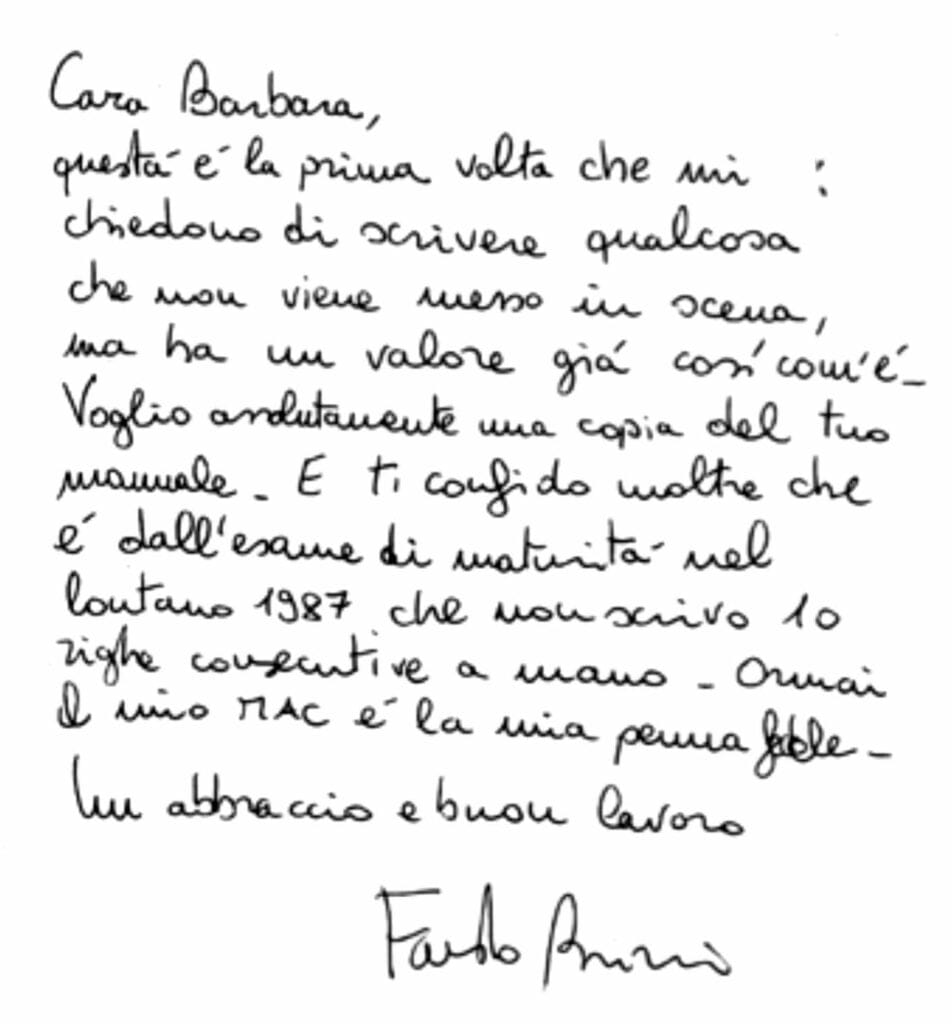 Cara Barbara,
questa é la prima volta che mi :
chiedono di scrivere qualcosa
che non viene messo in scena,
ma ha un valore giá cosí com'é -
Voglio assolutamente una copia del tuo
manuale - E ti confido inoltre che
é dall'esame di maturitá nel
lontano 1987 che non scrivo 10
righe consecutive a mano - Ormai
il mio MAC é la mia penna -
Un abbraccio e buon lavoro
Fausto Brizzi